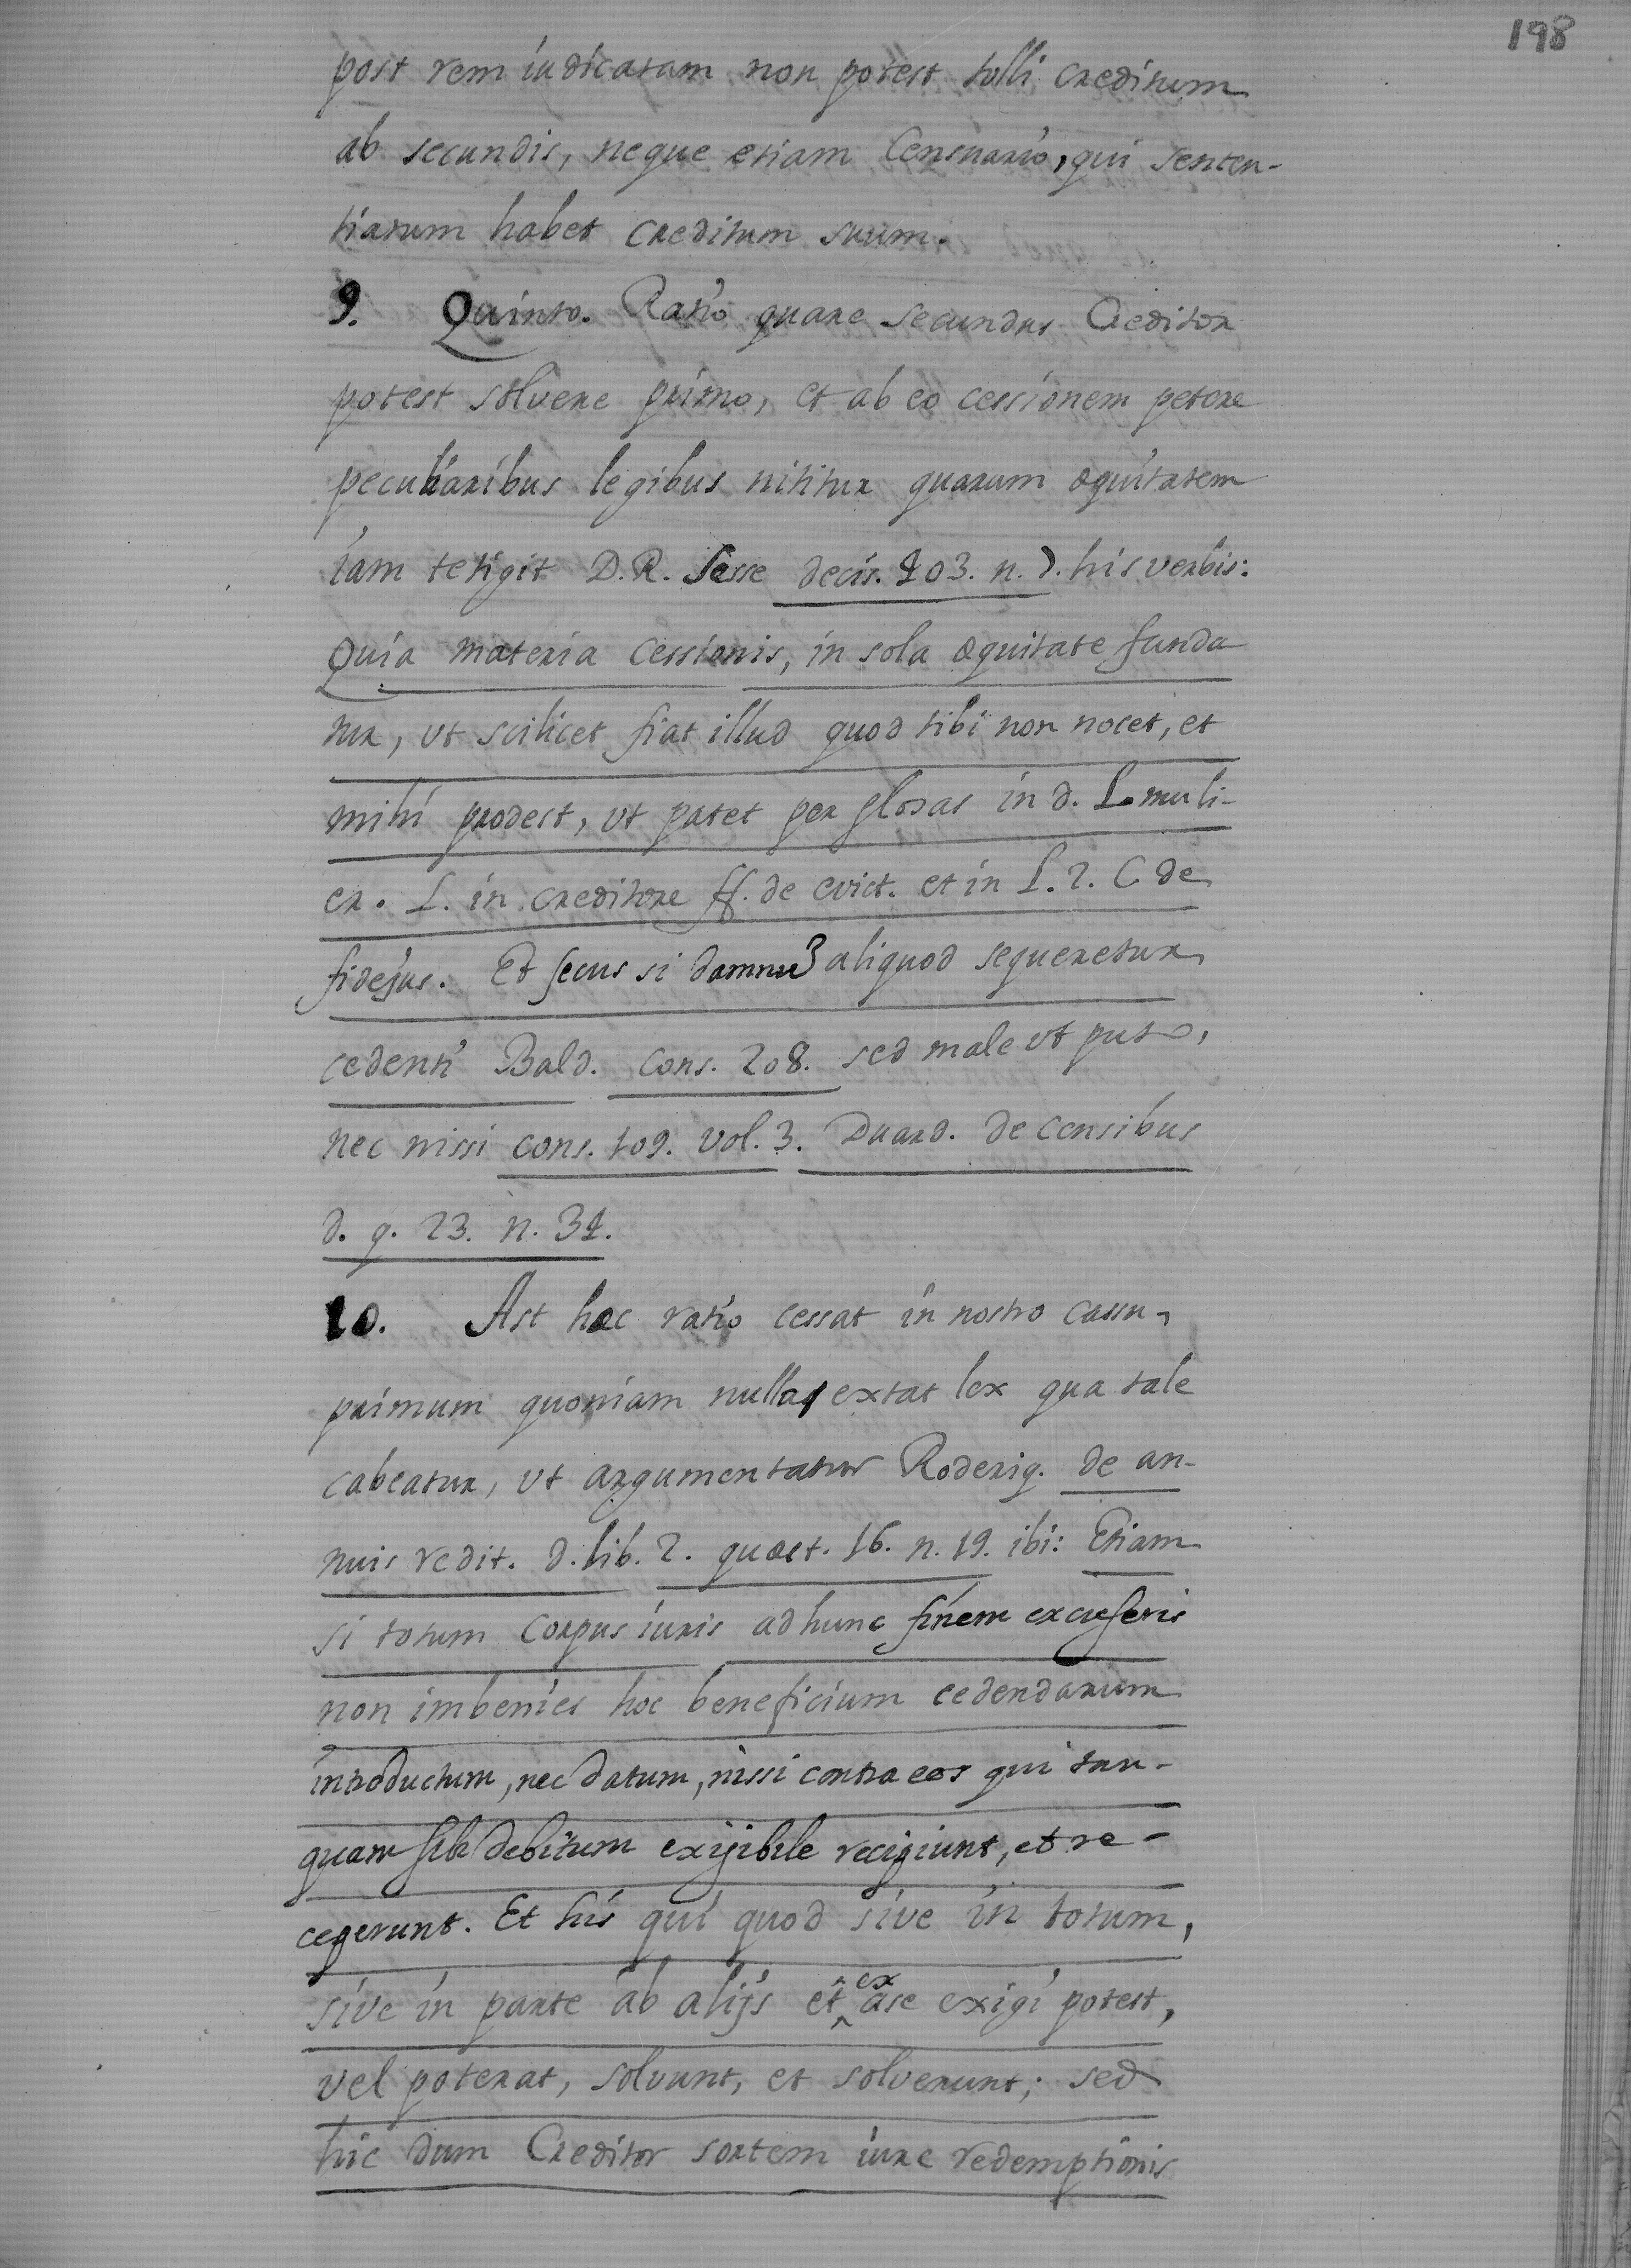 198
post rem iudicatam non potest tolli creditum
ab secundis, neque etiam Censuario, qui senten-
tiatum habet creditum suum.
9. Quinto. Ratio quare secundus Creditor
potest solvere primo, et ab eo cessionem petere
peculiaribus legibus nititur quarum æquitatem
iam tetigit D. R. Sesse decis. 203. n. 7. his verbis:
Quia materia cessionis, in sola æquitate funda
tur, ut scilicet fiat illud quod tibi non nocet, et
mihi prodest, ut patet per glosas in d. L. muli-
er. L. in creditore ff. de evict. et in L. 2. C de
fidejus. Et secus si damnũ aliquod sequeretur
cedenti Bald. cons. 208. sed male ut puto,
nec nissi cons. 109. vol. 3. Duard. de censibus
d. q. 23. n. 34.
10. Ast hæc ratio cessat in nostro cassu,
primum quoniam nulla extat lex qua tale
cabeatur, ut argumentatur Roderiq. de an-
nuis redit. d. lib. 2. quæst. 16. n. 19. ibi: Etiam
si totum corpus iuris ad hunc finem excuseris
non imbenies hoc beneficium cedendarum
introductum, nec datum, nissi contra eos qui tan-
quam sibi debitum exijibile recipiunt, et re-
ceperunt. Et his qui quod sive in totum,
sive in parte ab alijs et ex ase exigi potest,
vel poterat, solvunt, et solverunt; sed
hic dum Creditor sortem iure redemptionis